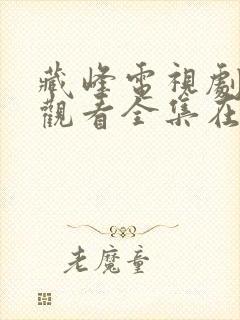 藏峰電視劇
觀看全集在
老魔童